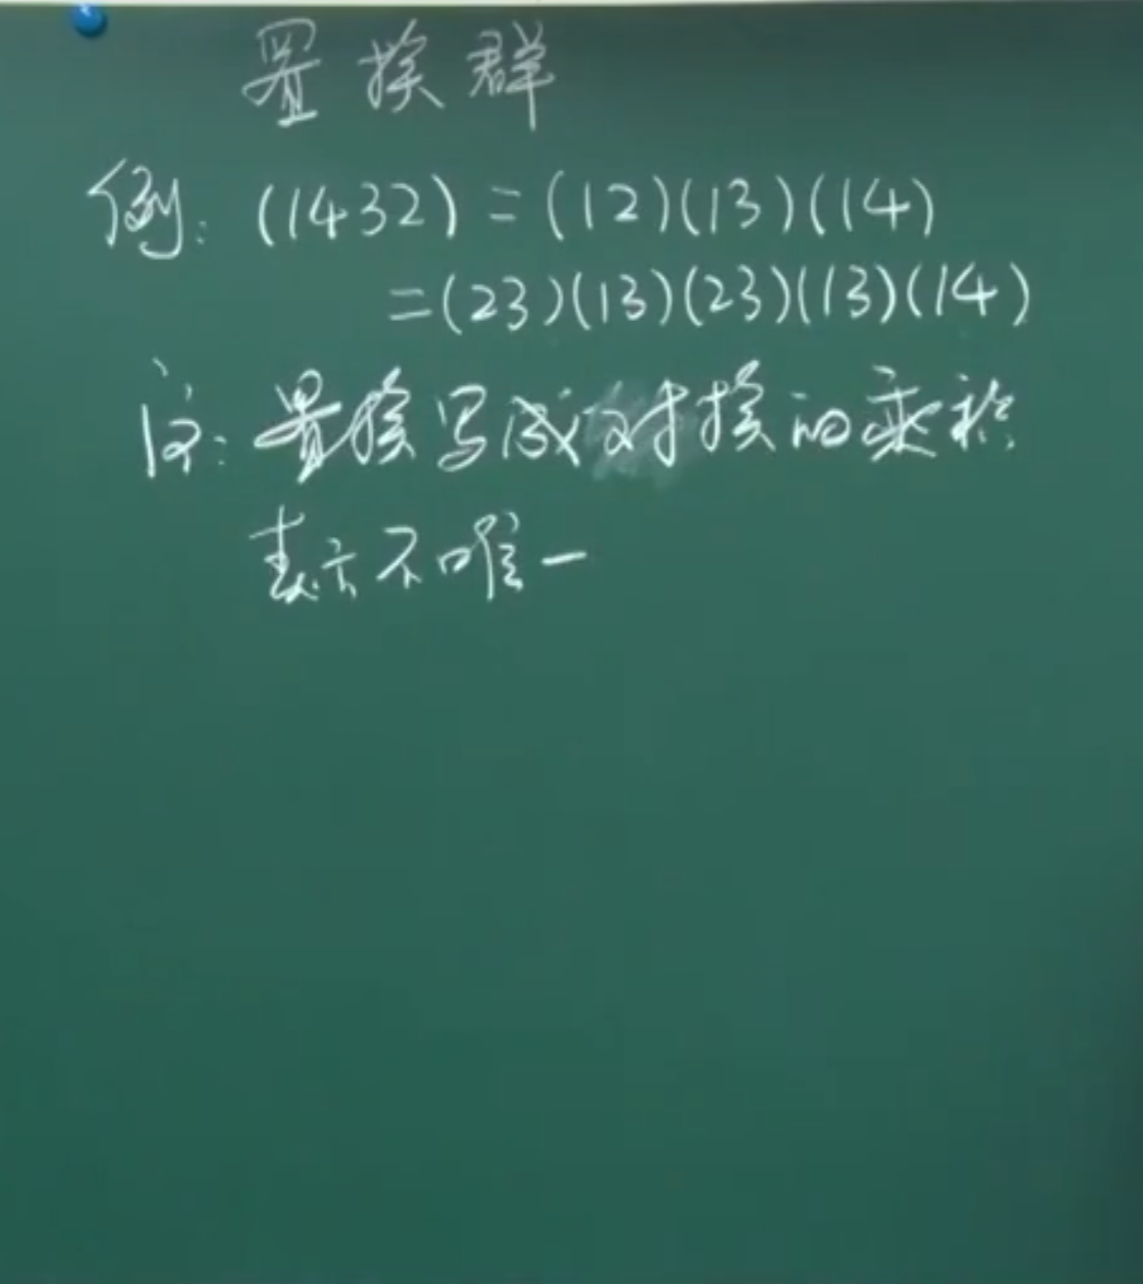 置换群
例: (1432) = (12)(13)(14)
=(23)(13)(23)(13)(14)
注: 置换写成对换的乘积
表示不唯一